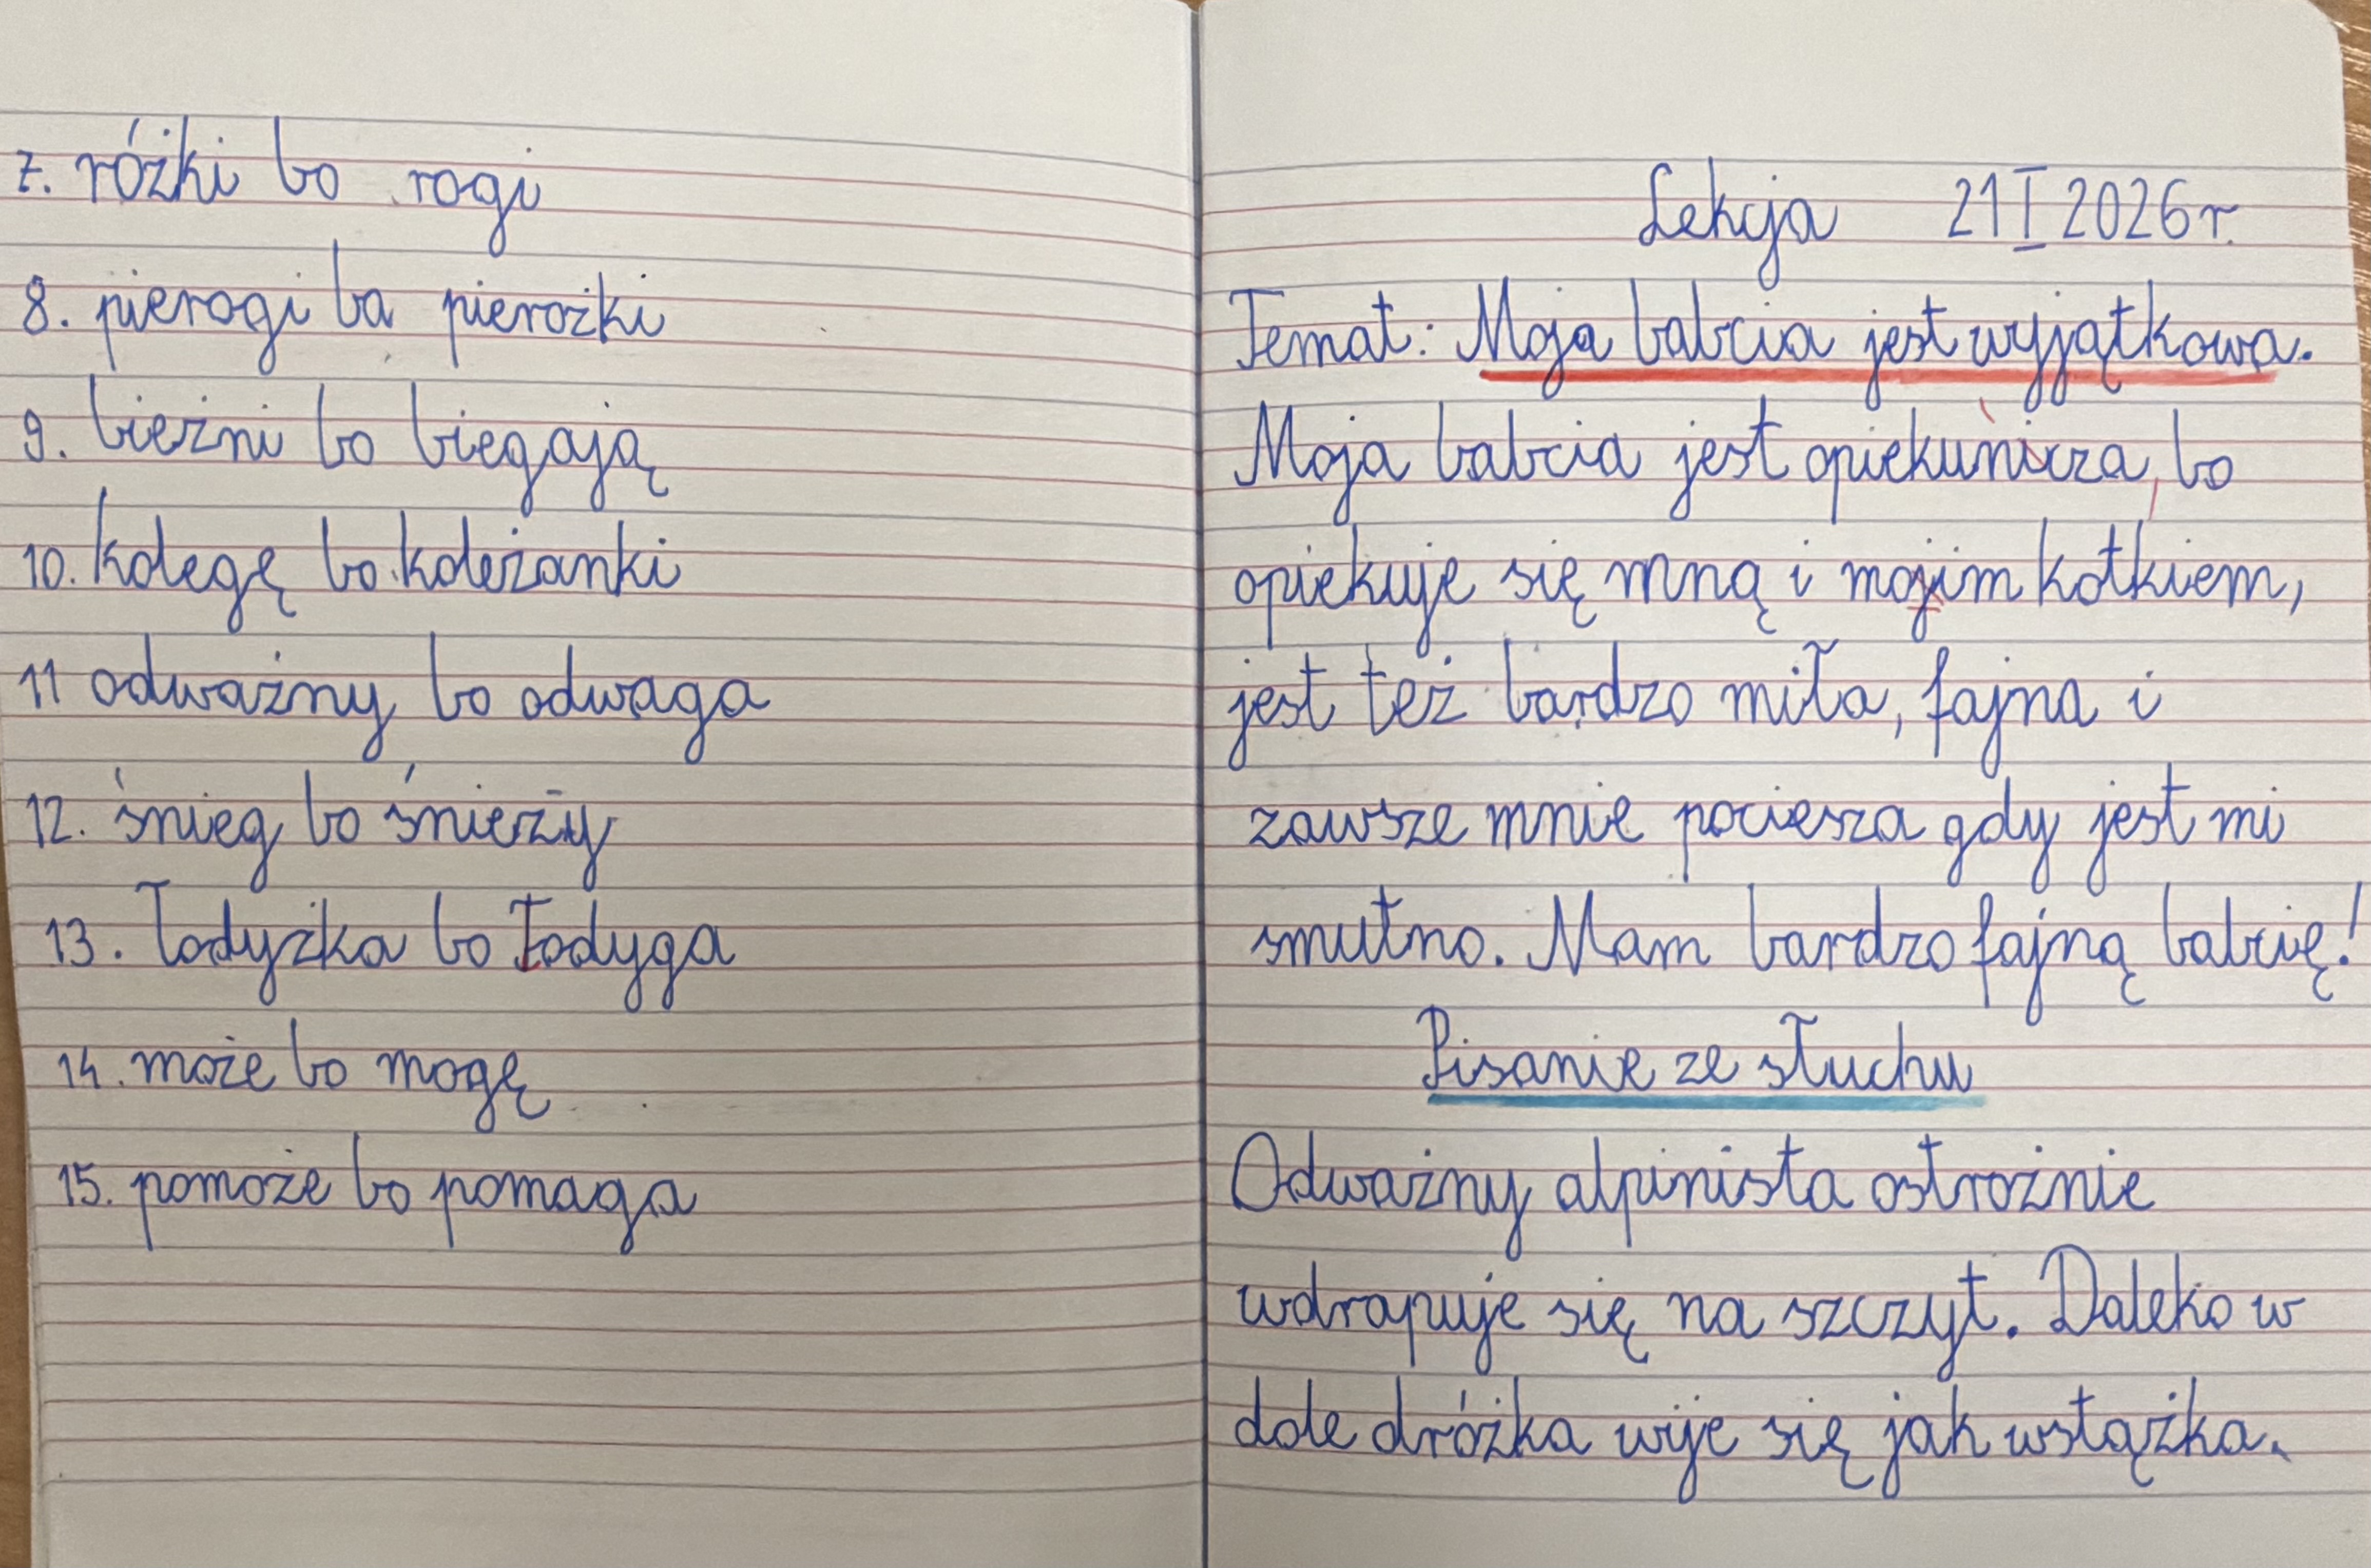 7. różki bo rogi
8. pierogi ba pierożki
9. bieżni bo biegają
10. kolegę bo koleżanki
11 odważny bo odwaga
12. śnieg bo śnieży
13. łodyżka bo łodyga
14. może bo mogę
15. pomoże bo pomaga
Lekcja 21 I 2026 r.
Temat: Moja babcia jest wyjątkowa.
Moja babcia jest opiekuńicza, bo
opiekuje się mną i mojim kotkiem,
jest też bardzo miła, fajna i
zawsze mnie pociesza gdy jest mi
smutno. Mam bardzo fajną babcię!
Pisanie ze słuchu
Odważny alpinista ostrożnie
wdrapuje się na szczyt. Daleko w
dole dróżka wije się jak wstążka.